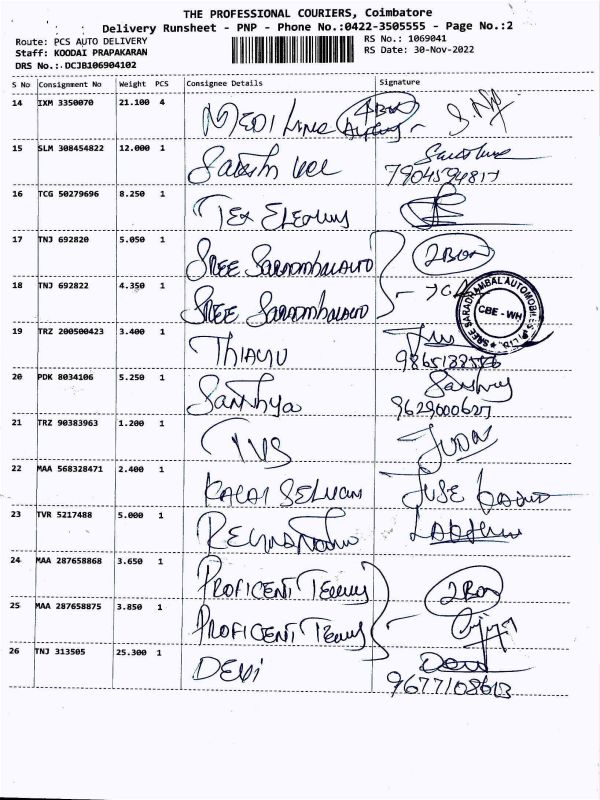 THE PROFESSIONAL COURIERS, Coimbatore
Delivery Runsheet - PNP - Phone No.:0422-3505555 - Page No.:2
Route: PCS AUTO DELIVERY
Staff: KOODAI PRAPAKARAN
DRS No.: DCJB106904102
RS No.: 1069041
RS Date: 30-Nov-2022
S No Consignment No Weight PCS Consignee Details Signature
14 IXM 3350070 21.100 4 MEDI Line 4 Box
15 SLM 308454822 12.000 1 Sakthi
7904594817
16 TCG 50279696 8.250 1 Tex
17 TNJ 692820 5.050 1 SREE Saradmbalauto 2 Box
18 TNJ 692822 4.350 1 SREE Saradmbalauto
SREE SARADHAMBAL AUTOMOBILES P LTD.
CBE - WH
19 TRZ 200500423 3.400 1 THIAGU
20 PDK 8034106 5.250 1 Santhya
9629000627
21 TRZ 90383963 1.200 1 TVS
22 MAA 568328471 2.400 1 KALAI SELVAN
23 TVR 5217488 5.000 1
24 MAA 287658868 3.650 1 PROFICENT 2 Box
25 MAA 287658875 3.850 1 PROFICENT
26 TNJ 313505 25.300 1 DEVI Devi